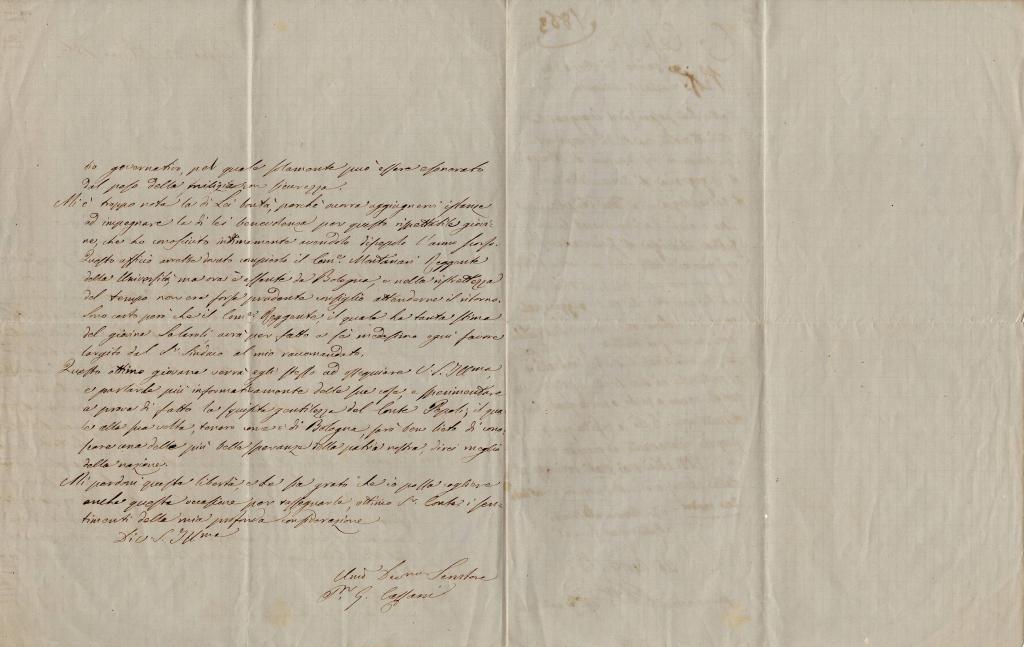 to governativo, nel quale solamente può essere esonerato
dal peso della milizia in sicurezza.
Mi è troppo nota la di Lei bontà, perchè occorra aggiugnervi istanze
ad impegnare la di lei benevolenza per questo rispettabile giova-
ne, che ho conosciuto intimamente avendolo discepolo l'anno scorso.
Questo officio avrebbe dovuto compierlo il Com.e Montanari Reggente
della Università, ma ora è assente da Bologna, e nella ristrettezza
del tempo non era forse prudente consiglio attenderne il ritorno.
Sono certo però che il Com.e Reggente, il quale ha tanta stima
del giovine avrà per fatto a sè medesimo ogni favore
largito dal S.r Sindaco al mio raccomandato.
Questo ottimo giovane verrà egli stesso ad ossequiare V. S. Illma,
e parlarle più informatamente delle sue cose, e sperimentare
a prova di fatto la squisita gentilezza del Conte Pepoli; il qua-
le alla sua volta, tenero com'è di Bologna, sarà ben lieto di cono-
scere una delle più belle speranze della patria nostra, direi meglio
della nazione.
Mi perdoni questa libertà e che io possa cogliere
anche questa occasione per rassegnarle, ottimo S.r Conte, i sen-
timenti della mia profonda considerazione
Di V. S. Illma
Servitore
G. Cassani
1863